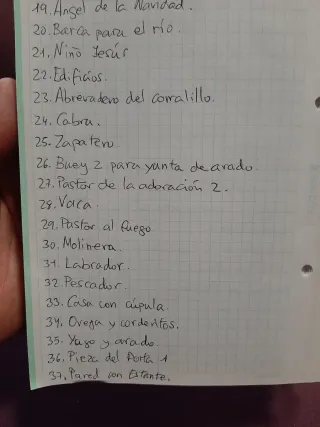 19. Ángel de la Navidad.
20. Barca para el río.
21. Niño Jesús
22. Edificios.
23. Abrevadero del corralillo.
24. Cabra.
25. Zapatero.
26. Buey 2 para yunta de arado.
27. Pastor de la adoración 2.
28. Vaca.
29. Pastor al fuego
30. Molinera.
31. Labrador.
32. Pescador.
33. Casa con cúpula.
34. Oveja y corderitos.
35. Yugo y arado.
36. Pieza del Portal 1
37. Pared con Estante.